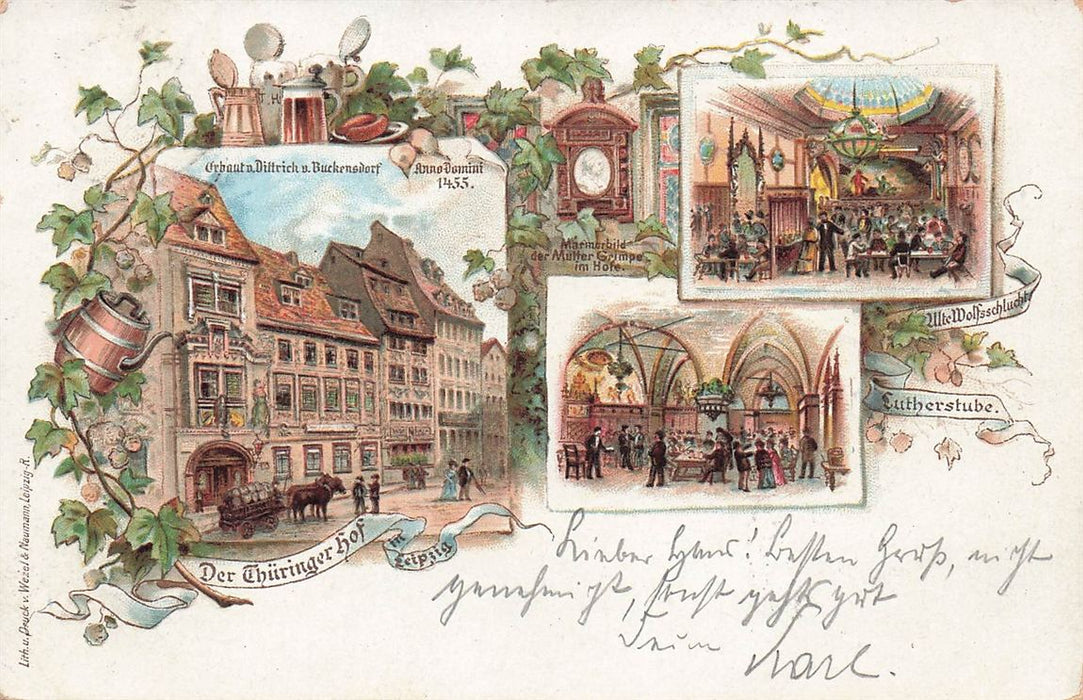 Erbaut v. Dittrich v. Buckensdorf Anno Domini
1455.
Marmorbild
der Mutter Grimpe
im Hofe.
Alte Wolfsschlucht.
Lutherstube.
Der Thüringer Hof
in
Leipzig
Lieber Hans! Besten Gruß, nicht
genehmigt, sonst geht's gut
Dein
Karl.
Lith. u. Druck v. Wezel & Naumann, Leipzig-R.